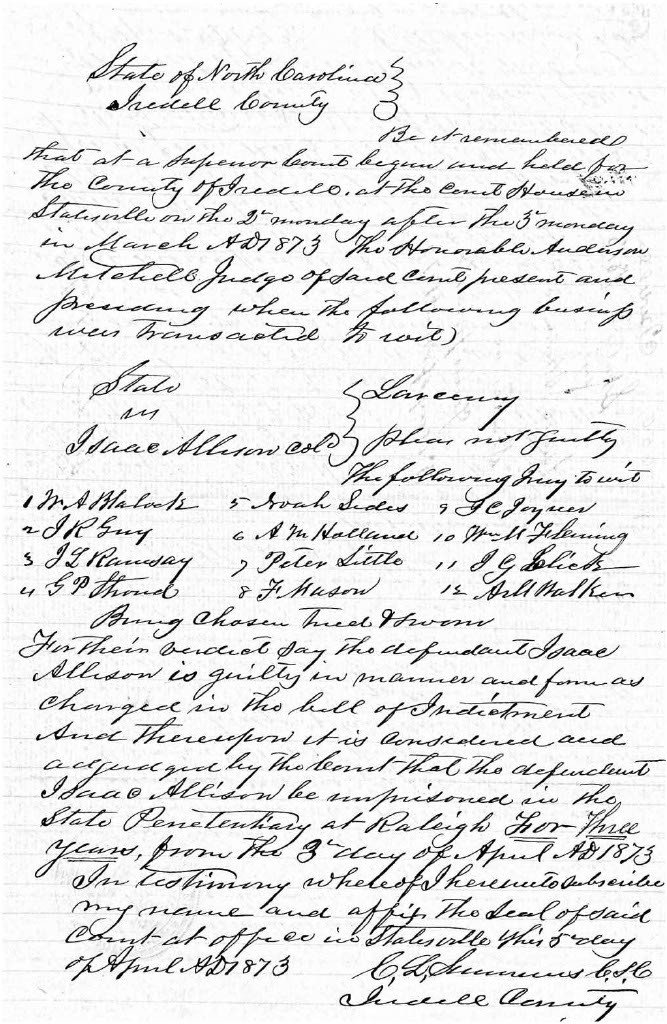 State of North Carolina
Iredell County
Be it remembered
that at a Superior Court began and held for
the County of Iredell at the Court House in
Statesville on the 2d monday after the 3d monday
in March AD 1873 The Honorable Anderson
Mitchell Judge of said Court present and
presiding when the following business
were transacted to wit)
State
vs
Isaac Allison cold
Larceny
pleas not guilty
The following Jury to wit
1 W A Blalock 5 Noah Sides 9 J C Joyner
2 J R Guy 6 A M Holland 10 Wm Fleming
3 J L Ramsay 7 Peter Little 11 J G
4 G P Stroud 8 F Mason 12 Walker
Being chosen tried & sworn
For their verdict say the defendant Isaac
Allison is guilty in manner and form as
charged in the bill of Indictment
And thereupon it is considered and
adjudged by the Court that the defendant
Isaac Allison be imprisoned in the
State Penetentiary at Raleigh For Three
years, from the 3d day of April AD 1873
In testimony whereof I hereunto subscribe
my name and affix the Seal of said
Court at office in Statesville this 5th day
of April AD 1873
C. L. Summers C.S.C
Iredell County